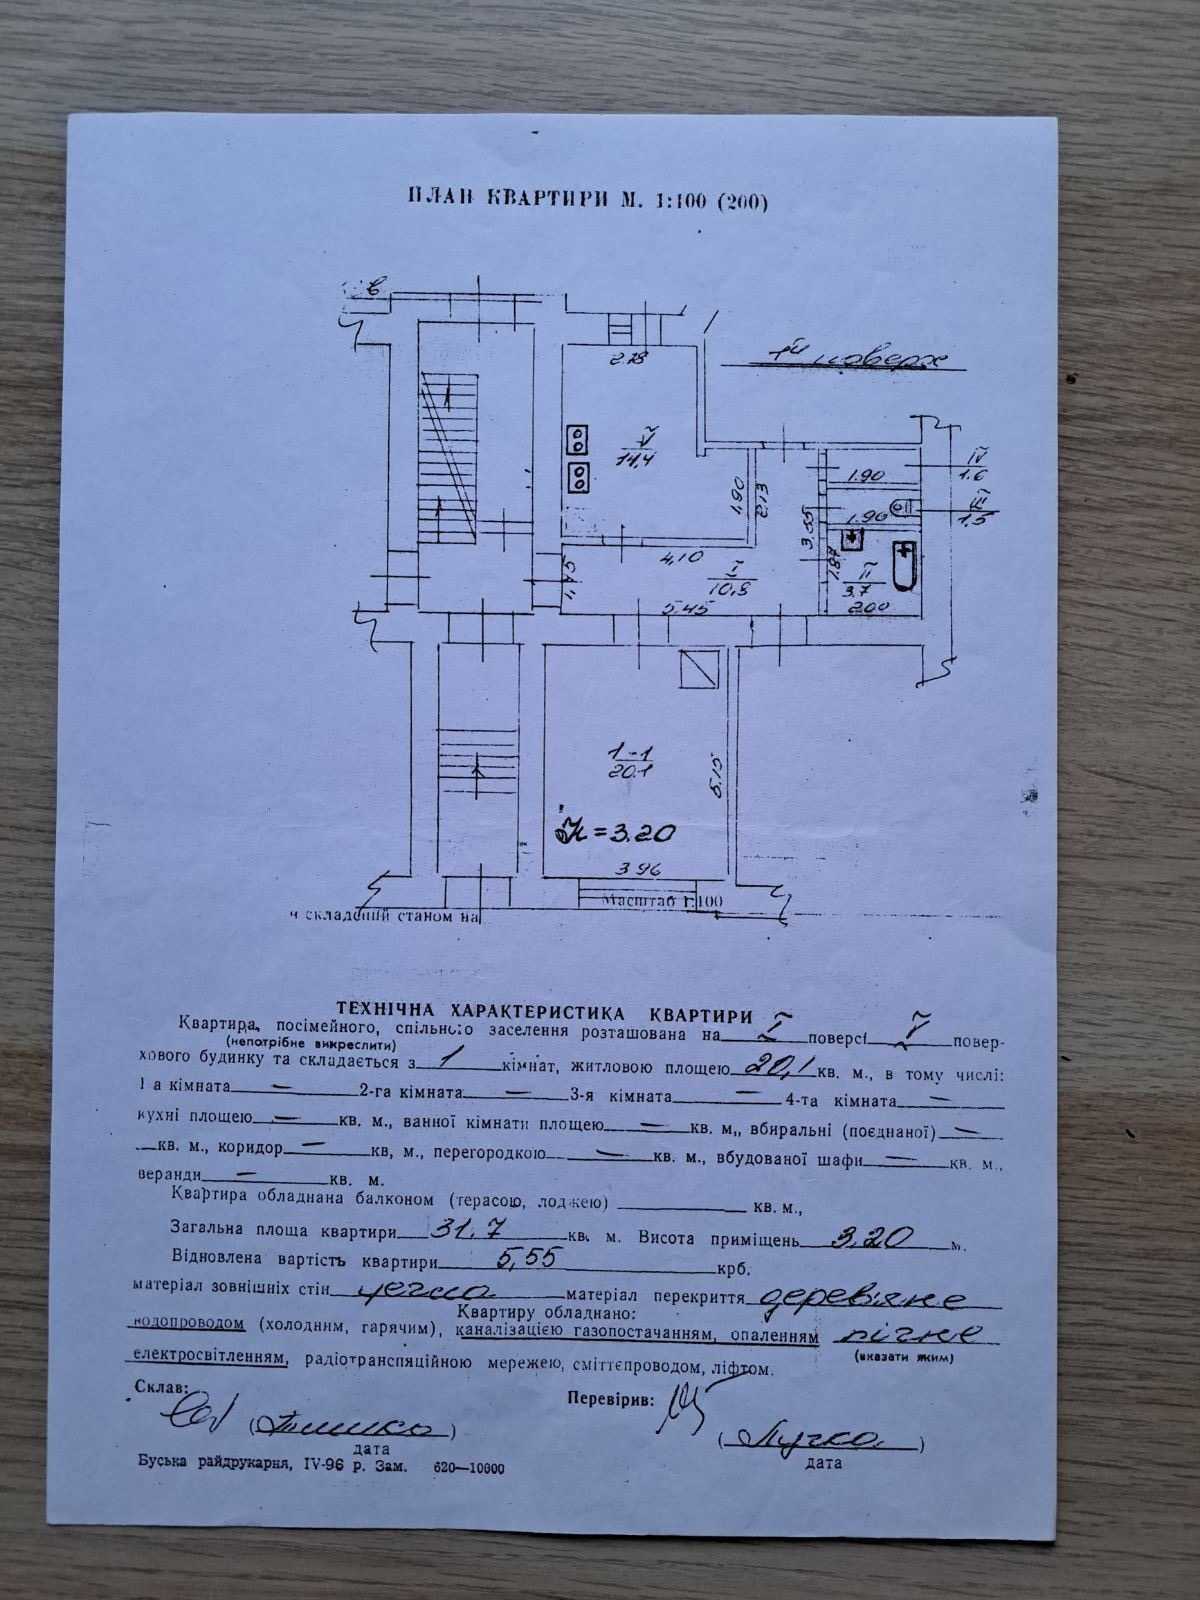 ПЛАН КВАРТИРИ М. 1:100 (200)
в
1й поверх
2.78
V
14,4
IV
1.6
1.90
4.90
3.13
III
1,5
1.90
3.55
1.87
II
3.7
2.00
4,10
I
10,8
1,45
5.45
1-1
20.1
5.15
h=3.20
3.96
Масштаб 1:100
ч складений станом на
ТЕХНІЧНА ХАРАКТЕРИСТИКА КВАРТИРИ
Квартира, посімейного, спільного заселення розташована на I поверсі V повер-
(непотрібне викреслити)
хового будинку та складається з 1 кімнат, житловою площею 20,1 кв. м., в тому числі:
1 а кімната — 2-га кімната — 3-я кімната — 4-та кімната —
кухні площею — кв. м., ванної кімнати площею — кв. м,, вбиральні (поєднаної) —
— кв. м., коридор — кв, м., перегородкою — кв. м., вбудованої шафи — кв. м.,
веранди — кв. м.
Квартира обладнана балконом (терасою, лоджею) кв. м.,
Загальна площа квартири 31.7 кв. м. Висота приміщень 3.20 м.
Відновлена вартість квартири 5,55 крб.
матеріал зовнішніх стін цегла матеріал перекриття дерев'яне
Квартиру обладнано:
водопроводом (холодним, гарячим), каналізацією газопостачанням, опаленням пічне
(вказати яким)
електросвітленням, радіотранспяційною мережею, сміттєпроводом, ліфтом.
Склав:
Перевірив:
дата
дата
Буська райдрукарня, IV-96 р. Зам. 620—10000